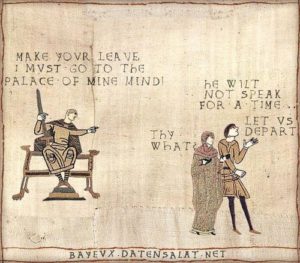 MAKE YOVR LEAVE
I MVST GO TO THE
PALACE OF MINE MIND!
HE WILT
NOT SPEAK
FOR A TIME...
LET VS
DEPART
THY
WHAT?
BAYEVX.DATENSALAT.NET